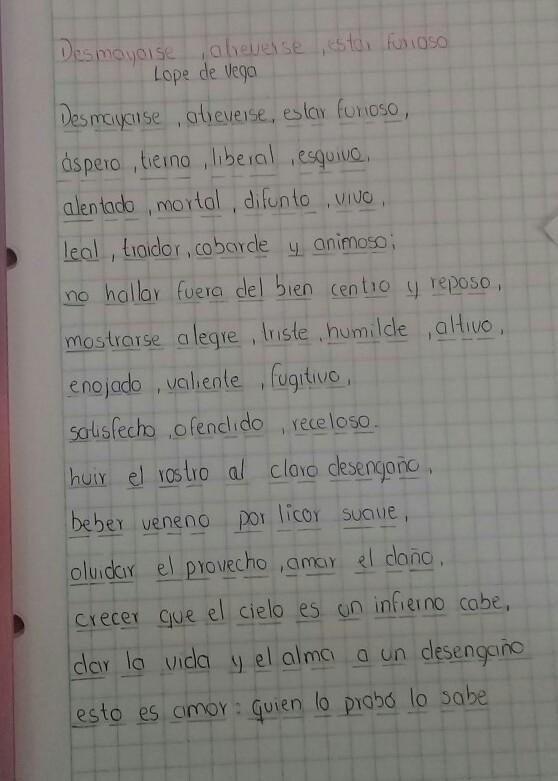 Desmayarse , atreverse , estar furioso
Lope de Vega
Desmayarse , atreverse, estar furioso,
áspero , tierno , liberal , esquivo,
alentado , mortal , difunto , vivo ,
leal , traidor , cobarde y animoso;
no hallar fuera del bien centro y reposo,
mostrarse alegre , triste , humilde , altivo ,
enojado , valiente , fugitivo ,
satisfecho , ofendido , receloso.
huir el rostro al claro desengaño ,
beber veneno por licor suave ,
olvidar el provecho , amar el daño ,
crecer que el cielo es un infierno cabe,
dar la vida y el alma a un desengaño
esto es amor : quien lo probó lo sabe